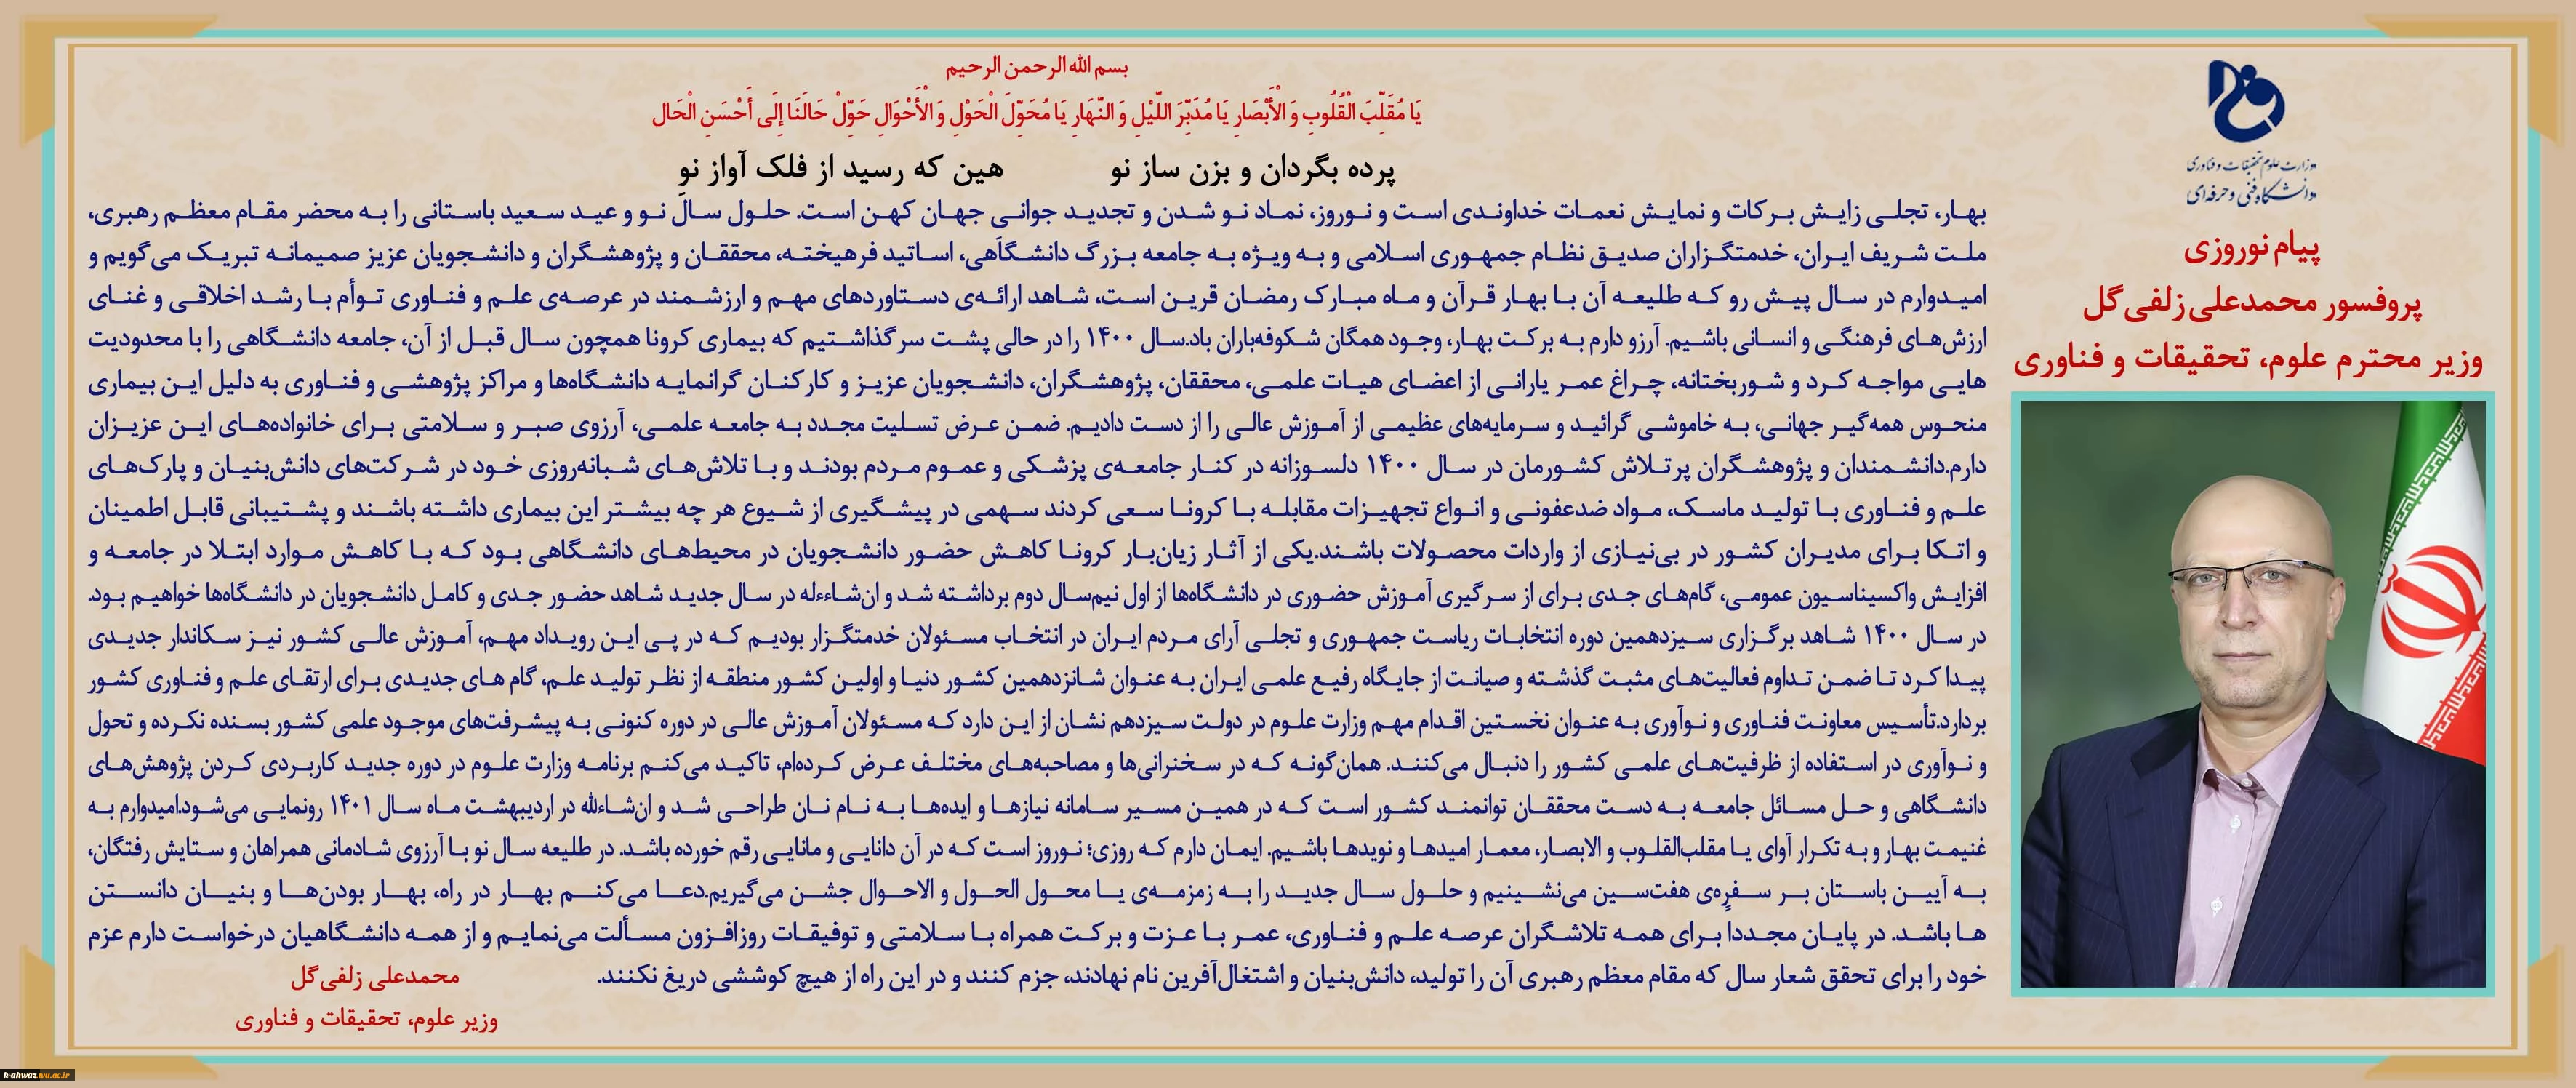 وزارت علوم تحقیقات و فناوری
دانشگاه فنی و حرفه‌ای
پیام نوروزی
پروفسور محمدعلی زلفی‌گل
وزیر محترم علوم، تحقیقات و فناوری
بسم الله الرحمن الرحیم
یَا مُقَلِّبَ الْقُلُوبِ وَ الْأَبْصَارِ یَا مُدَبِّرَ اللَّیْلِ وَ النَّهَارِ یَا مُحَوِّلَ الْحَوْلِ وَ الْأَحْوَالِ حَوِّلْ حَالَنَا إِلَى أَحْسَنِ الْحَال
پرده بگردان و بزن ساز نو هین که رسید از فلک آواز نو
بهار، تجلی زایش برکات و نمایش نعمات خداوندی است و نوروز، نماد نو شدن و تجدید جوانی جهان کهن است. حلول سال نو و عید سعید باستانی را به محضر مقام معظم رهبری،
ملت شریف ایران، خدمتگزاران صدیق نظام جمهوری اسلامی و به ویژه به جامعه بزرگ دانشگاهی، اساتید فرهیخته، محققان و پژوهشگران و دانشجویان عزیز صمیمانه تبریک می‌گویم و
امیدوارم در سال پیش رو که طلیعه آن با بهار قرآن و ماه مبارک رمضان قرین است، شاهد ارائه‌ی دستاوردهای مهم و ارزشمند در عرصه‌ی علم و فناوری توأم با رشد اخلاقی و غنای
ارزش‌های فرهنگی و انسانی باشیم. آرزو دارم به برکت بهار، وجود همگان شکوفه‌باران باد.سال ۱۴۰۰ را در حالی پشت سر گذاشتیم که بیماری کرونا همچون سال قبل از آن، جامعه دانشگاهی را با محدودیت
هایی مواجه کرد و شوربختانه، چراغ عمر یارانی از اعضای هیات علمی، محققان، پژوهشگران، دانشجویان عزیز و کارکنان گرانمایه دانشگاه‌ها و مراکز پژوهشی و فناوری به دلیل این بیماری
منحوس همه‌گیر جهانی، به خاموشی گرائید و سرمایه‌های عظیمی از آموزش عالی را از دست دادیم. ضمن عرض تسلیت مجدد به جامعه علمی، آرزوی صبر و سلامتی برای خانواده‌های این عزیزان
دارم.دانشمندان و پژوهشگران پرتلاش کشورمان در سال ۱۴۰۰ دلسوزانه در کنار جامعه‌ی پزشکی و عموم مردم بودند و با تلاش‌های شبانه‌روزی خود در شرکت‌های دانش‌بنیان و پارک‌های
علم و فناوری با تولید ماسک، مواد ضدعفونی و انواع تجهیزات مقابله با کرونا سعی کردند سهمی در پیشگیری از شیوع هر چه بیشتر این بیماری داشته باشند و پشتیبانی قابل اطمینان
و اتکا برای مدیران کشور در بی‌نیازی از واردات محصولات باشند.یکی از آثار زیان‌بار کرونا کاهش حضور دانشجویان در محیط‌های دانشگاهی بود که با کاهش موارد ابتلا در جامعه و
افزایش واکسیناسیون عمومی، گام‌های جدی برای از سرگیری آموزش حضوری در دانشگاه‌ها از اول نیم‌سال دوم برداشته شد و ان‌شاءءله در سال جدید شاهد حضور جدی و کامل دانشجویان در دانشگاه‌ها خواهیم بود.
در سال ۱۴۰۰ شاهد برگزاری سیزدهمین دوره انتخابات ریاست جمهوری و تجلی آرای مردم ایران در انتخاب مسئولان خدمتگزار بودیم که در پی این رویداد مهم، آموزش عالی کشور نیز سکاندار جدیدی
پیدا کرد تا ضمن تداوم فعالیت‌های مثبت گذشته و صیانت از جایگاه رفیع علمی ایران به عنوان شانزدهمین کشور دنیا و اولین کشور منطقه از نظر تولید علم، گام های جدیدی برای ارتقای علم و فناوری کشور
بردارد.تأسیس معاونت فناوری و نوآوری به عنوان نخستین اقدام مهم وزارت علوم در دولت سیزدهم نشان از این دارد که مسئولان آموزش عالی در دوره کنونی به پیشرفت‌های موجود علمی کشور بسنده نکرده و تحول
و نوآوری در استفاده از ظرفیت‌های علمی کشور را دنبال می‌کنند. همان‌گونه که در سخنرانی‌ها و مصاحبه‌های مختلف عرض کرده‌ام، تاکید می‌کنم برنامه وزارت علوم در دوره جدید کاربردی کردن پژوهش‌های
دانشگاهی و حل مسائل جامعه به دست محققان توانمند کشور است که در همین مسیر سامانه نیازها و ایده‌ها به نام نان طراحی شد و ان‌شاءلله در اردیبهشت ماه سال ۱۴۰۱ رونمایی می‌شود.امیدوارم به
غنیمت بهار و به تکرار آوای یا مقلب‌القلوب و الابصار، معمار امیدها و نویدها باشیم. ایمان دارم که روزی؛ نوروز است که در آن دانایی و مانایی رقم خورده باشد. در طلیعه سال نو با آرزوی شادمانی همراهان و ستایش رفتگان،
به آیین باستان بر سفره‌ی هفت‌سین می‌نشینیم و حلول سال جدید را به زمزمه‌ی یا محول الحول و الاحوال جشن می‌گیریم.دعا می‌کنم بهار در راه، بهار بودن‌ها و بنیان دانستن
ها باشد. در پایان مجددا برای همه تلاشگران عرصه علم و فناوری، عمر با عزت و برکت همراه با سلامتی و توفیقات روزافزون مسألت می‌نمایم و از همه دانشگاهیان درخواست دارم عزم
خود را برای تحقق شعار سال که مقام معظم رهبری آن را تولید، دانش‌بنیان و اشتغال‌آفرین نام نهادند، جزم کنند و در این راه از هیچ کوششی دریغ نکنند.
محمدعلی زلفی‌گل
وزیر علوم، تحقیقات و فناوری
k-ahwaz.tvu.ac.ir